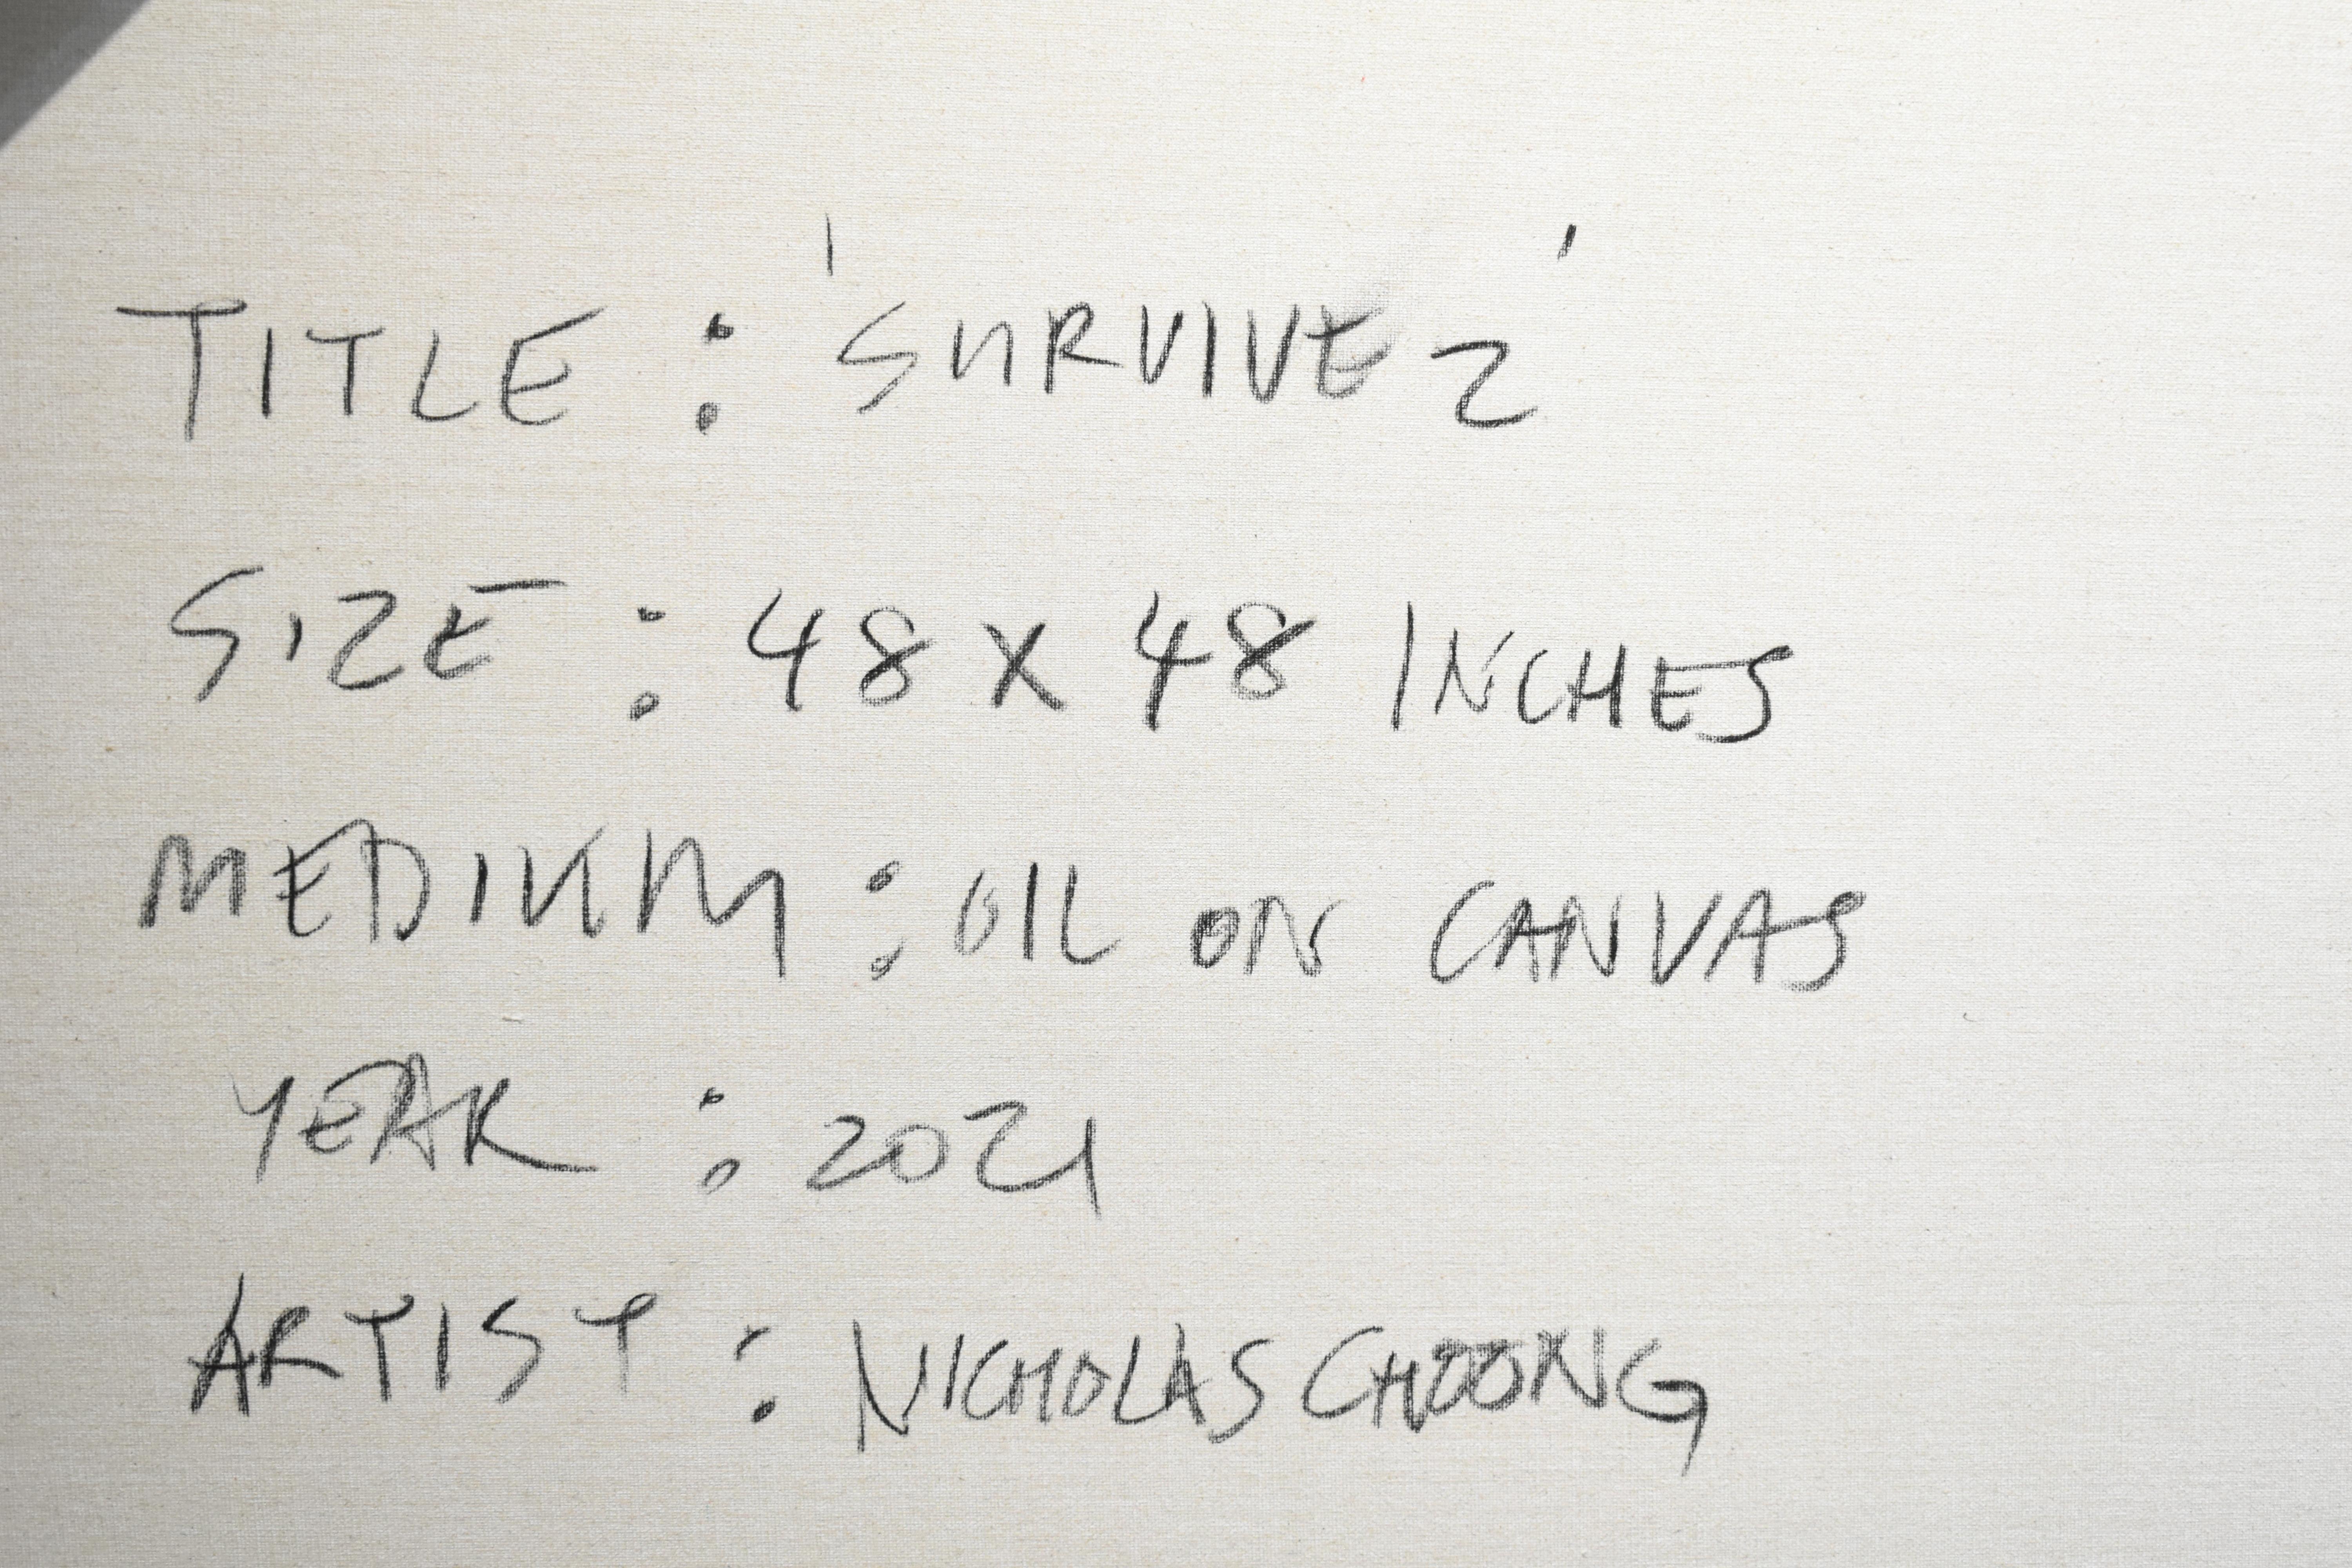 TITLE : 'SURVIVE 2'
SIZE : 48 X 48 INCHES
MEDIUM : OIL ON CANVAS
YEAR : 2021
ARTIST : NICHOLAS CHOONG